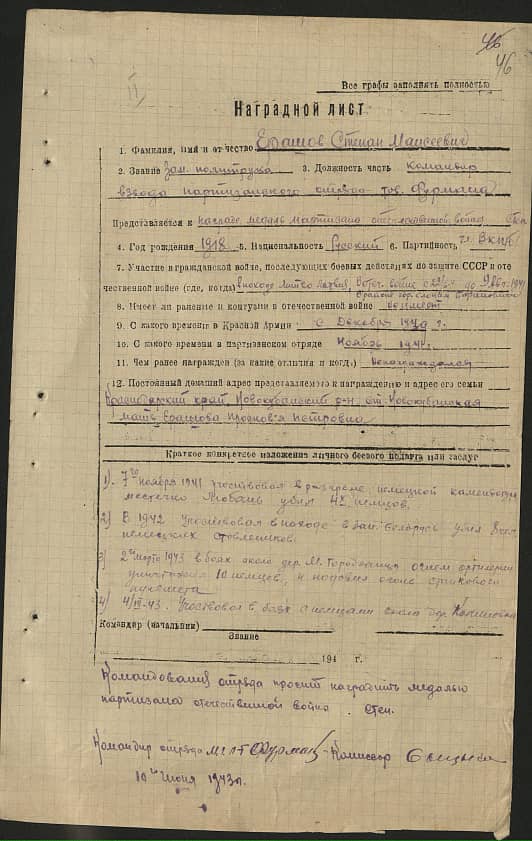 46
46
Все графы заполнять полностью
Наградной лист
1. Фамилия, имя и отчество Ерашов Степан Маисеевич
2. Звание Зам. политрука 3. Должность часть командир
взвода партизанского отряда тов. Фурмана
Представляется к награде медаль партизана отечественной войны Степ.
4. Год рождения 1918 5. Национальность Русский 6. Партийность чл. ВКП(б)
7. Участие в гражданской войне, последующих боевых действиях по защите СССР и оте
чественной войне (где, когда)
8. Имеет ли ранение и контузии в отечественной войне не имеет
9. С какого времени в Красной Армии с Декабря
10. С какого времени в партизанском отряде Ноябрь 1941г.
11. Чем ранее награжден (за какие отличия и когд.)
12. Постоянный домаший адрес представляемого к награждению и адрес его семьи
Краснодарский край Новокубанский р-н, ст. Новокубанская
мать Ерашова Петровна
Краткое конкретное изложение личного боевого подвига или заслуг
1) 7го ноября 1941 Участвовал в разгроме немецкой
местечко Любань убил немцев.
2) В 1942 Участвовал в походе в зап. Беларусь убил
немецких
3) 2 марта 1943 в боях около дер. М. Городятичи огнем
уничтожил 10 немцев, и подавил огонь станкового
пулемета
4) Участвовал в боях с немцами около дер.
Командир (начальник)
Звание
194 г.
Командования отряда просит наградить медалью
партизана отечественной война Степ.
Командир отряда Фурман Комиссар
10го Июня 1943г.